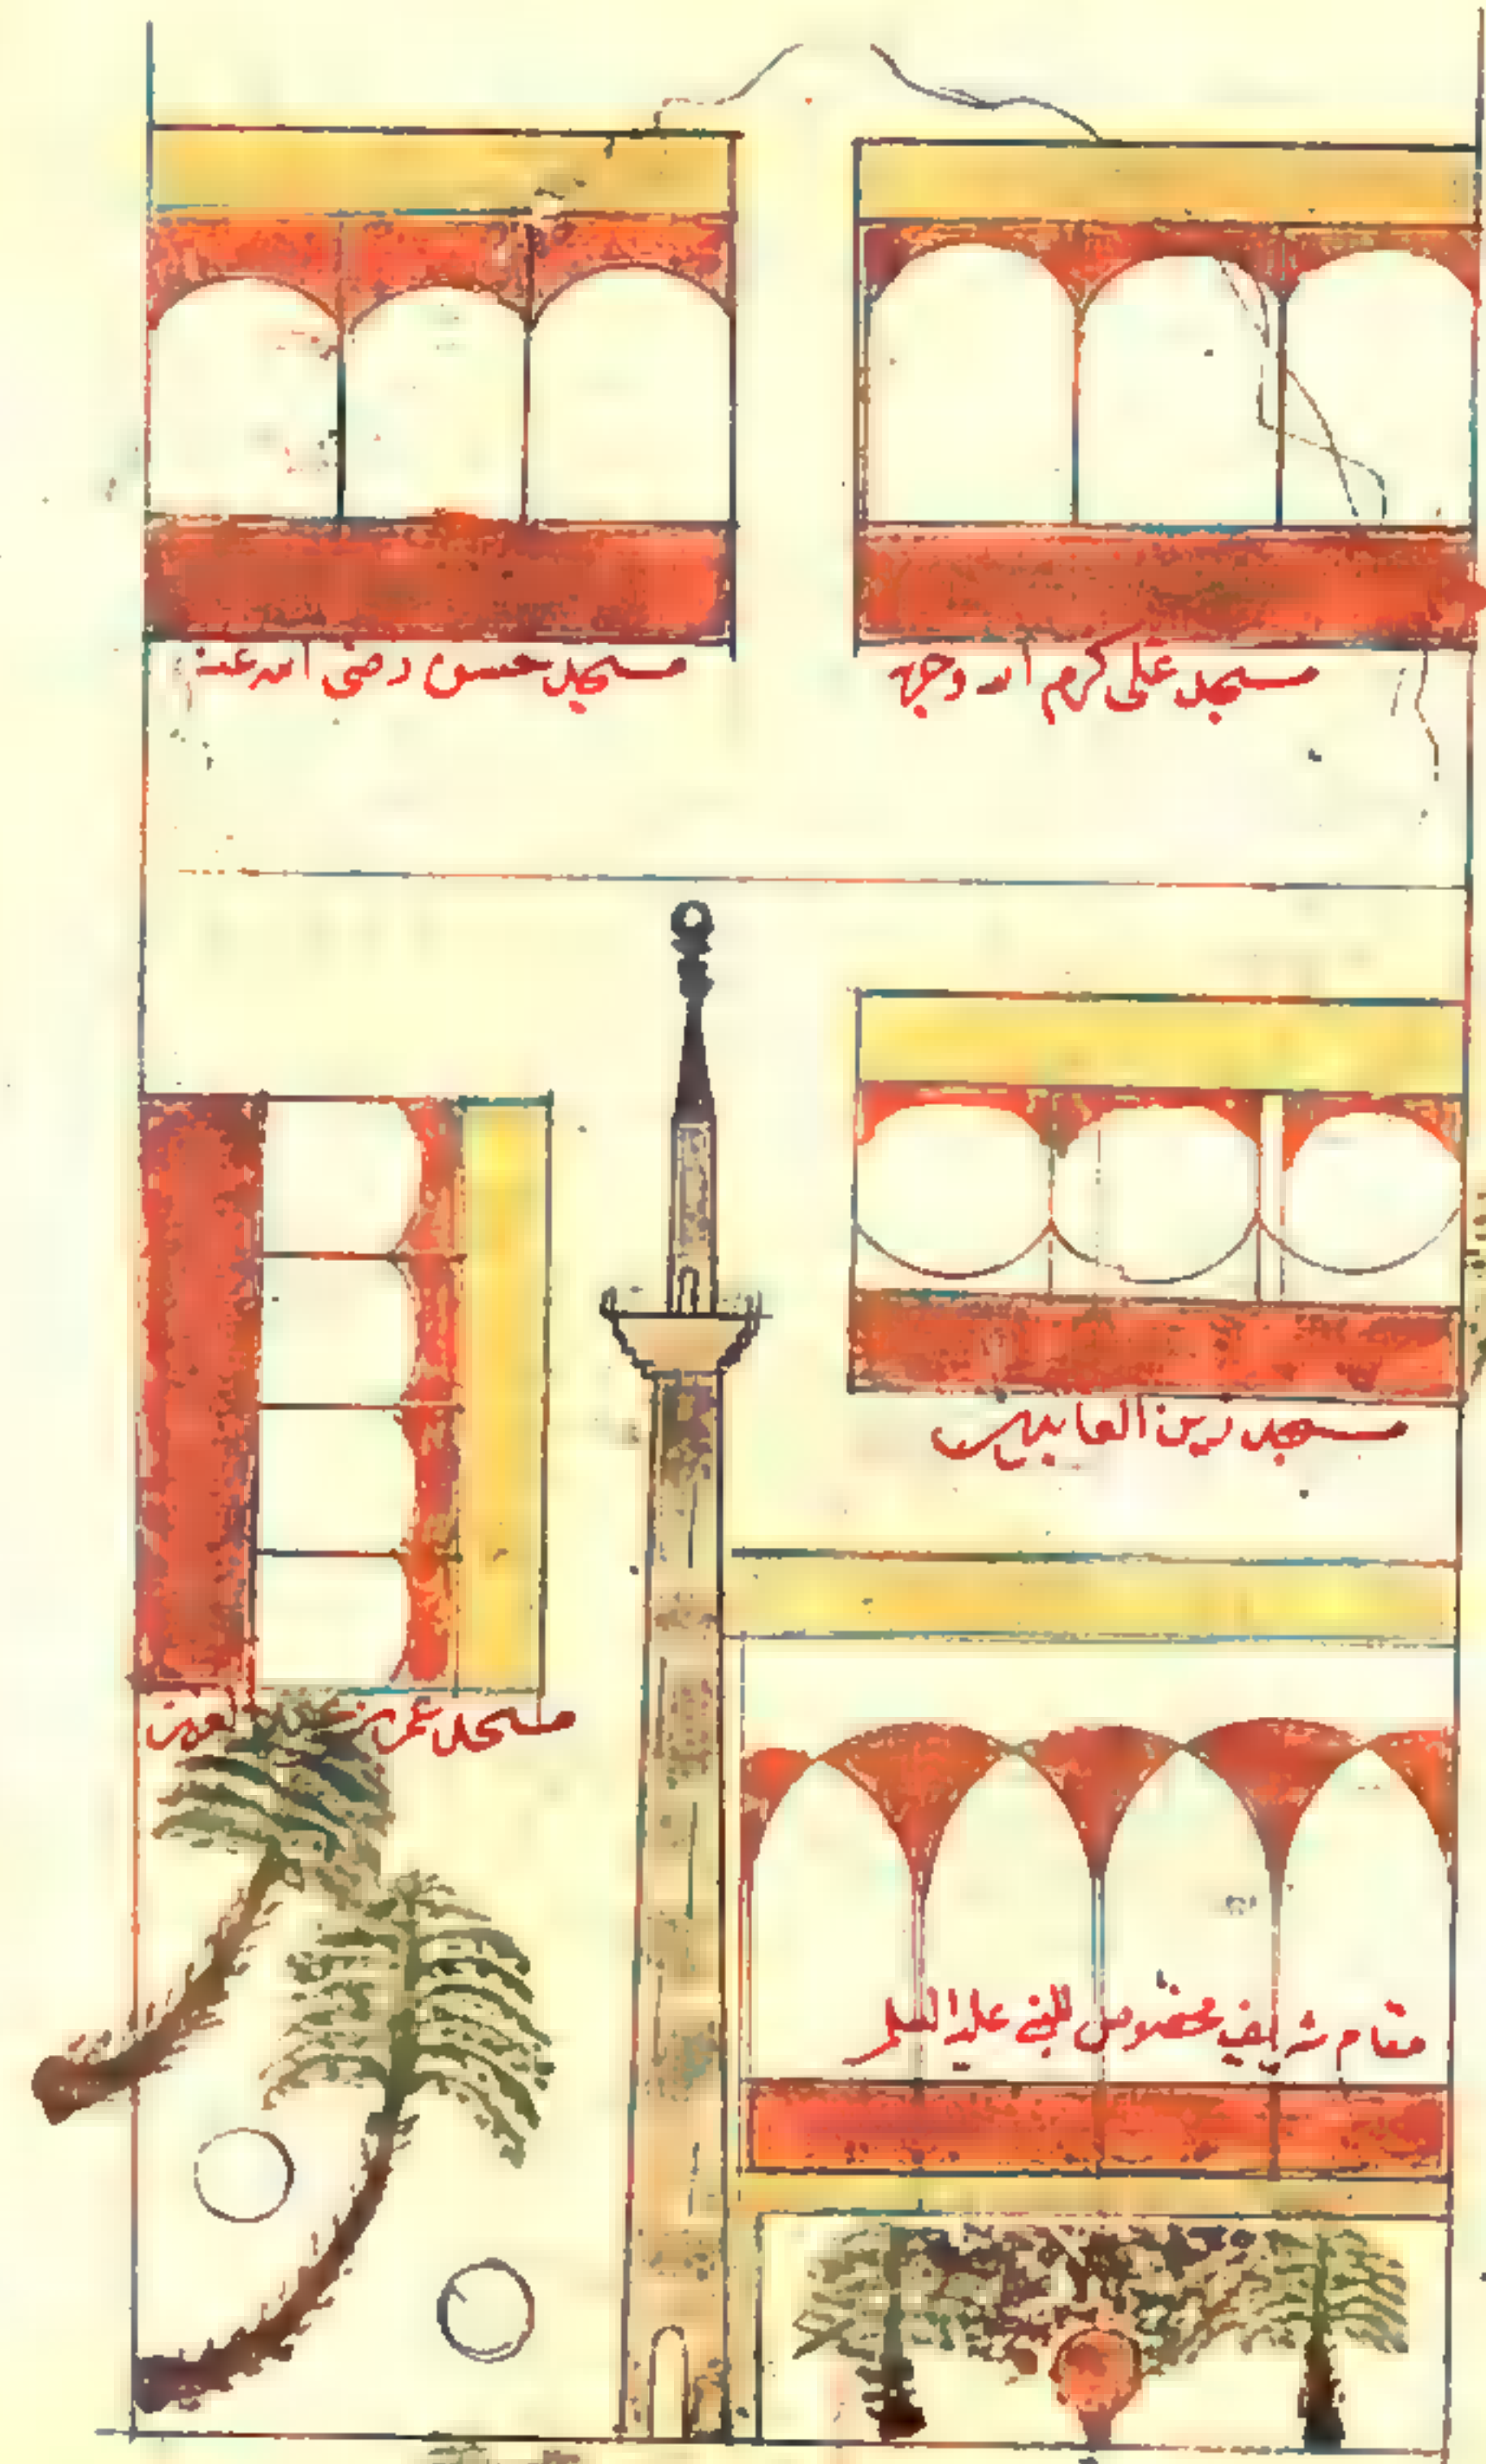 مسجد على كرم الله وجهه
مسجد حسن رضى الله عنه
مسجد زين العابدين
مسجد عمر بن عبد العزيز
مقام شريف مخصوص للنبي عليه السلام